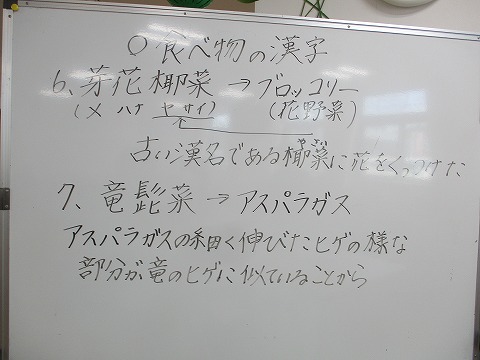 ○食べ物の漢字
6、芽花椰菜→ブロッコリー
(メ ハナ ヤ サイ) (花野菜)
やさい
古い漢名である椰菜に花をくっつけた
7、竜髭菜→アスパラガス
アスパラガスの細く伸びたヒゲの様な
部分が竜のヒゲに似ていることから